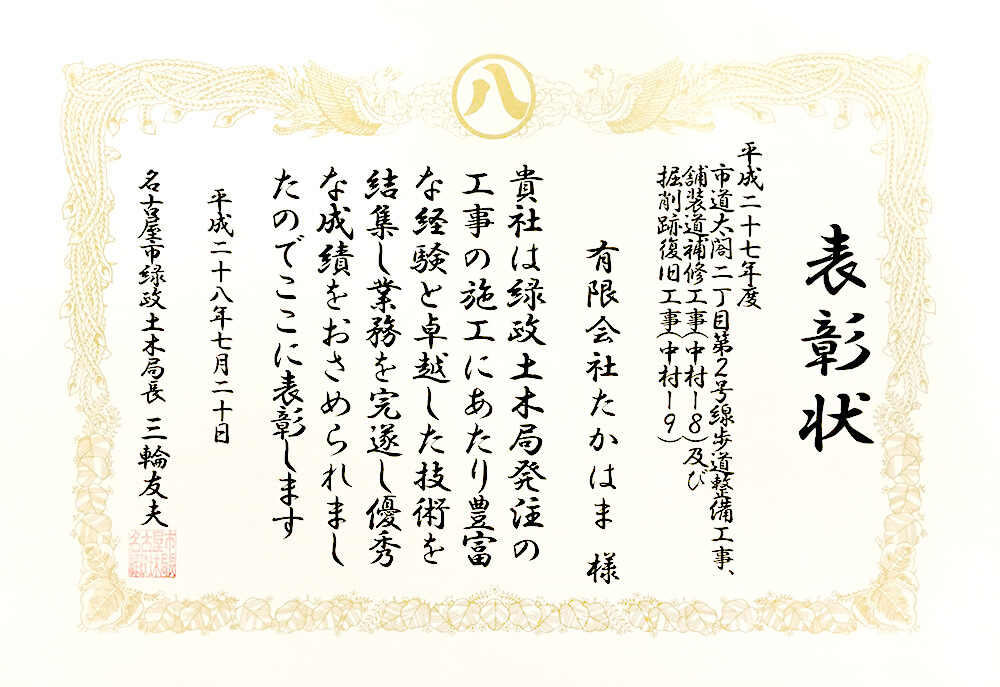 八
表彰状
平成二十七年度
市道太閤二丁目第2号線歩道整備工事、
舗装道補修工事(中村-8)及び
掘削跡復旧工事(中村-9)
有限会社たかはま 様
貴社は緑政土木局発注の
工事の施工にあたり豊富
な経験と卓越した技術を
結集し業務を完遂し優秀
な成績をおさめられまし
たのでここに表彰します
平成二十八年七月二十日
名古屋市緑政土木局長 三輪友夫